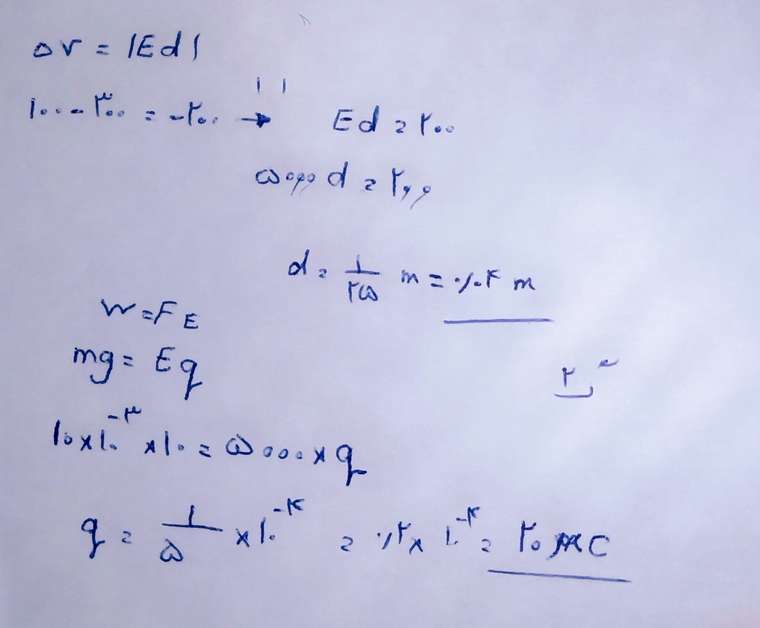 ΔV = |Ed|
۱۰۰ - ۳۰۰ = -۲۰۰ → Ed = ۲۰۰
۵۰۰۰ d = ۲۰۰
d = ۱/۲۵ m = ۰/۰۴ m
W = F_E
mg = Eq
۱۰×۱۰^-۳ ×۱۰ = ۵۰۰۰×q
q = ۱/۵ ×۱۰^-۴ = ۰/۲×۱۰^-۴ = ۲۰ μC